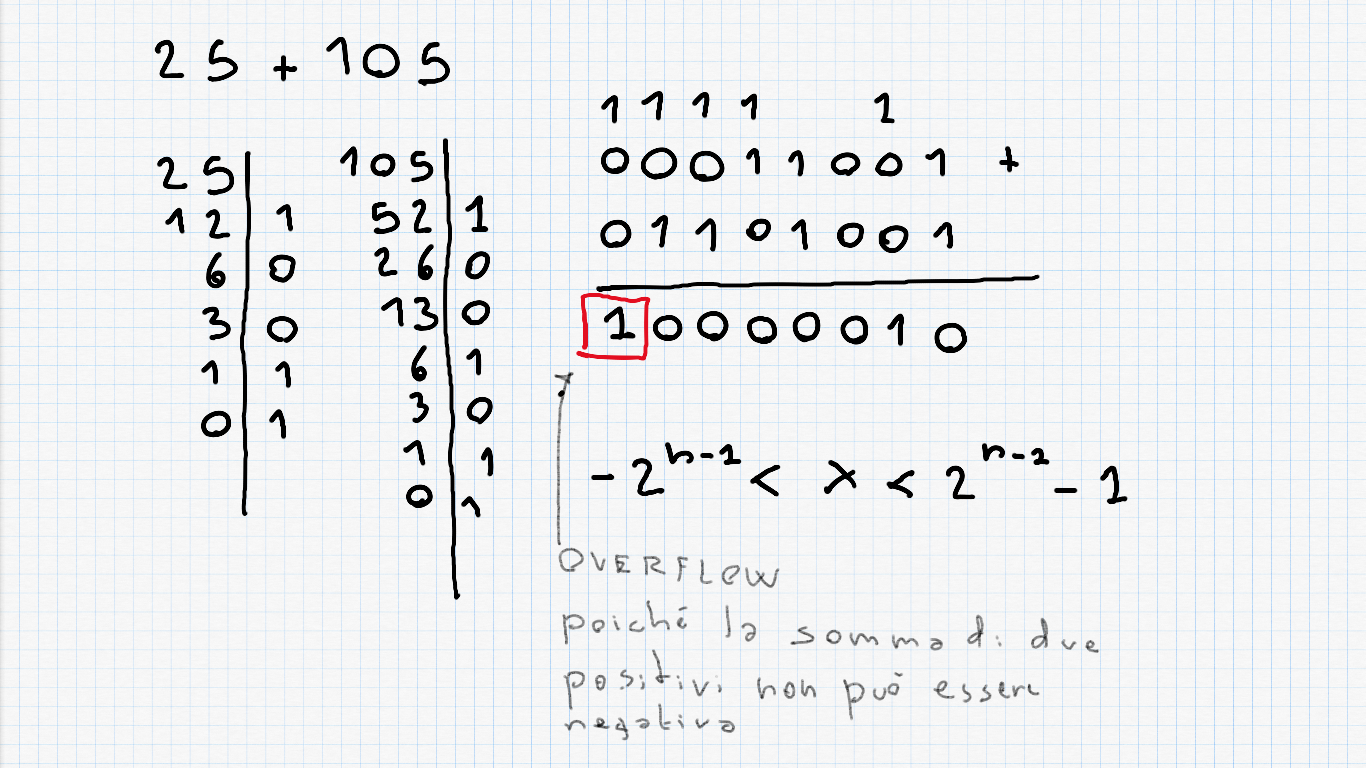 25 + 105
25
12 1
6 0
3 0
1 1
0 1
105
52 1
26 0
13 0
6 1
3 0
1 1
0 1
1 1 1 1 1
00011001 +
01101001
10000010
-2^{n-1} < x < 2^{n-1} - 1
OVERFLOW
poiché la somma di due
positivi non può essere
negativa